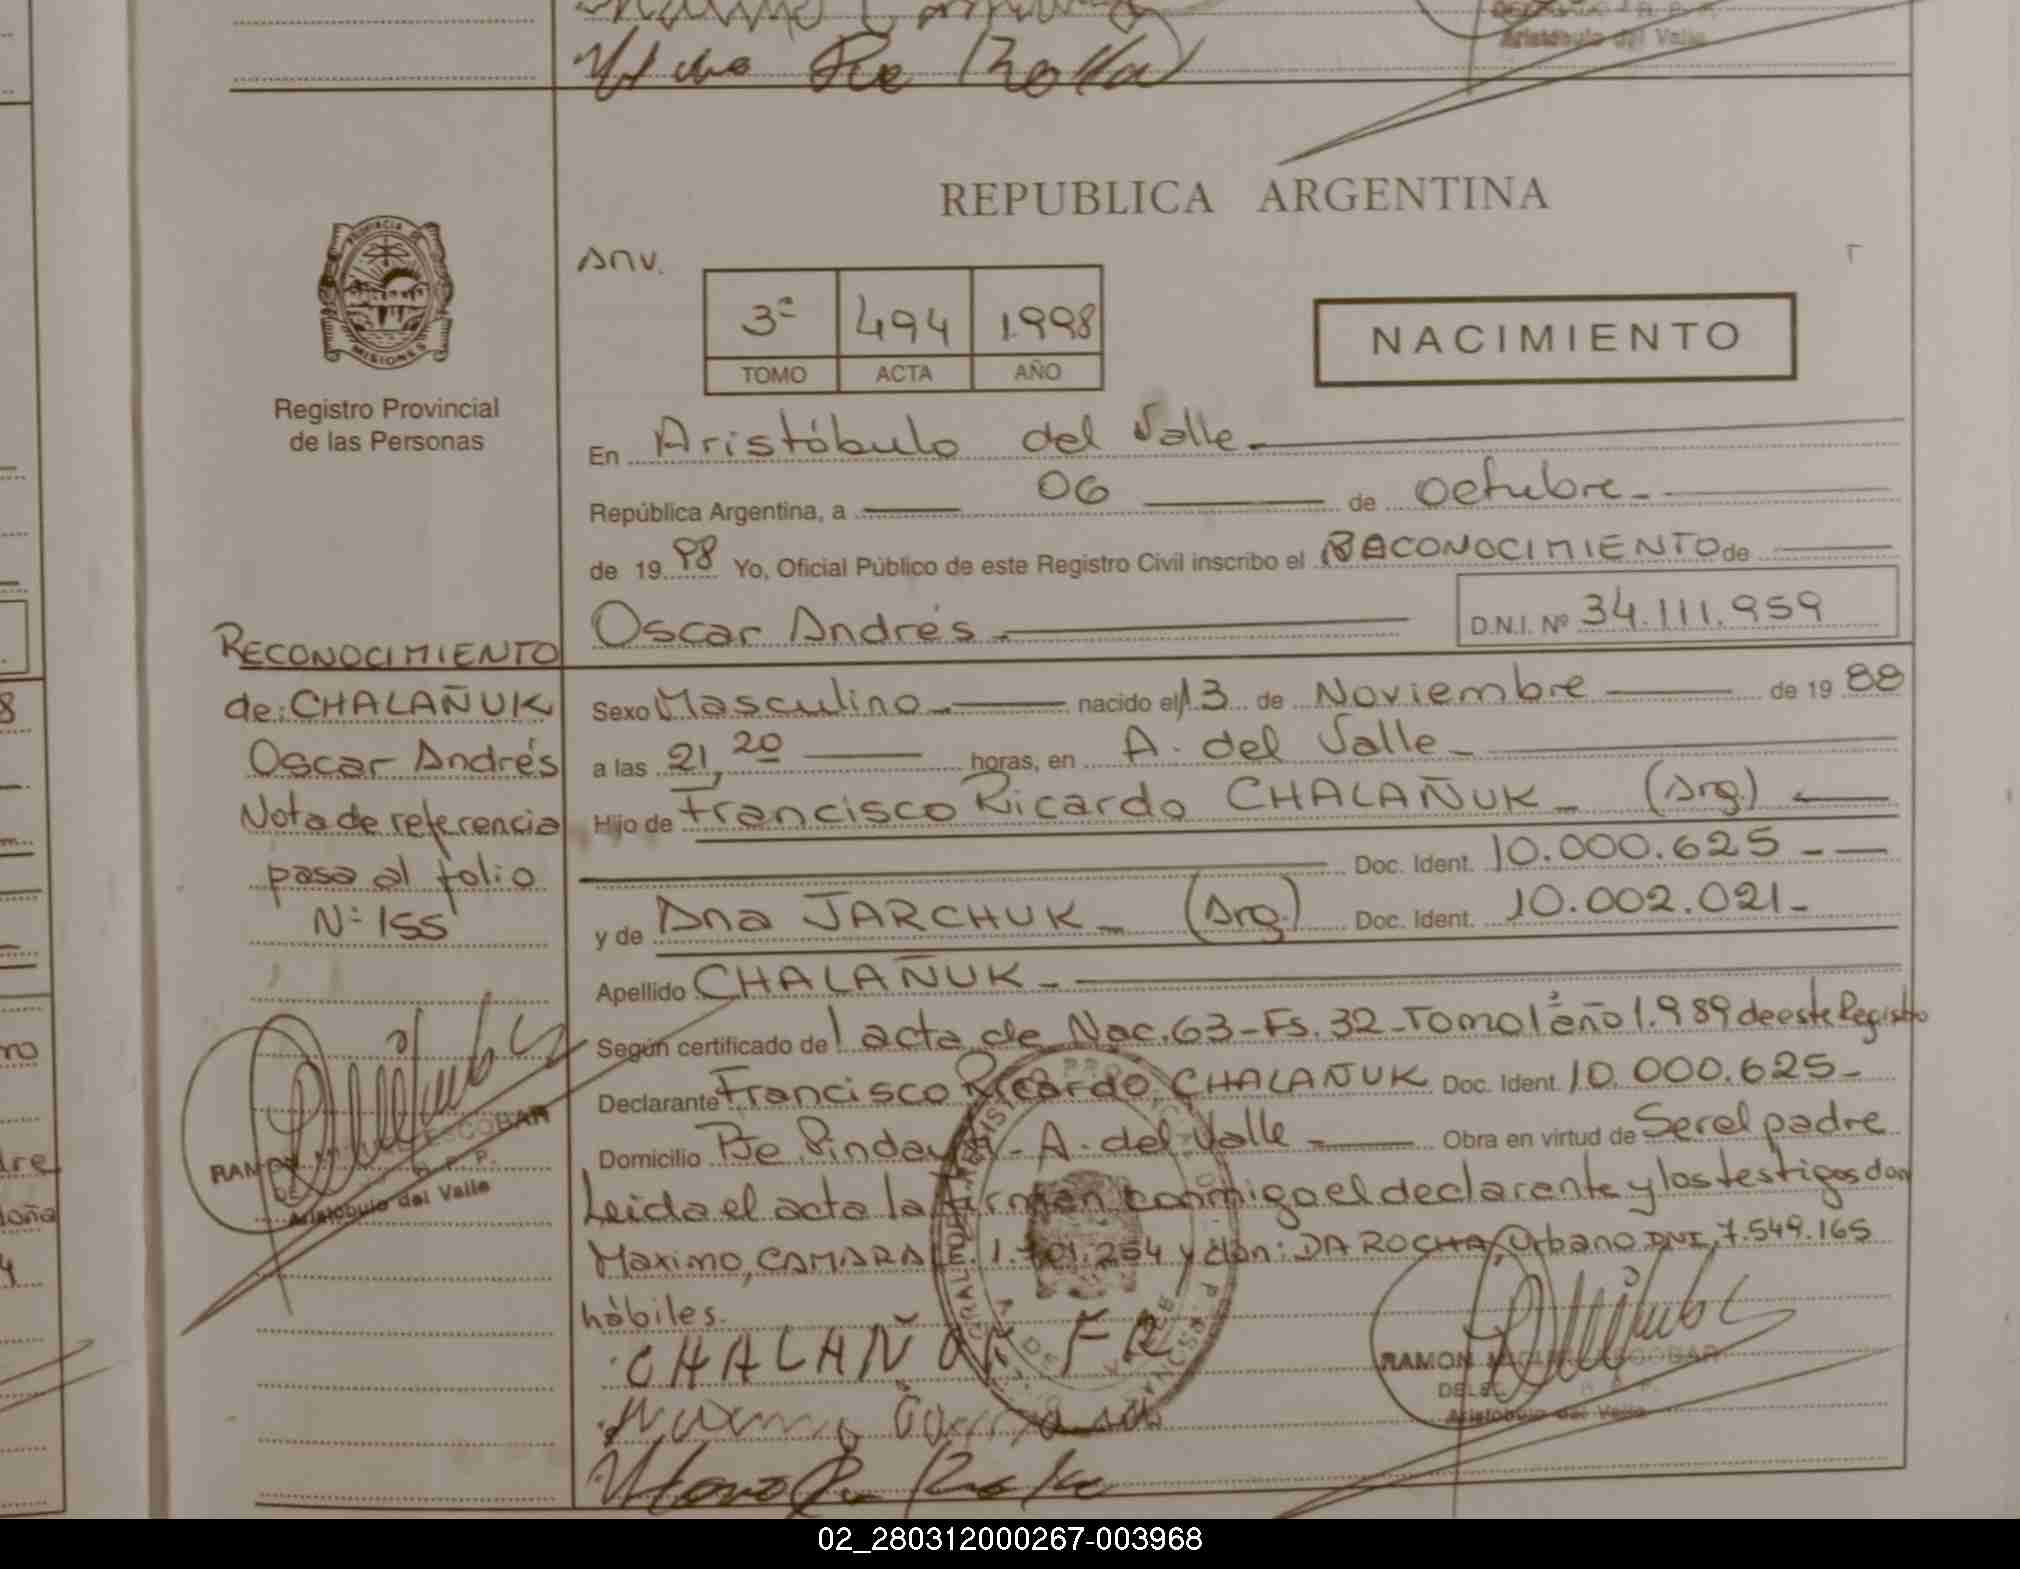 Aristóbulo del Valle
REPUBLICA ARGENTINA
PROVINCIA DE
MISIONES
Registro Provincial
de las Personas
Anv.
3º 494 1.998
TOMO ACTA AÑO
NACIMIENTO
En Aristóbulo del Valle.
República Argentina, a 06 de Octubre.
de 19 98 Yo, Oficial Público de este Registro Civil inscribo el RECONOCIMIENTO de
Oscar Andrés. D.N.I. Nº 34.111.959
RECONOCIMIENTO
de: CHALAÑUK
Oscar Andrés
Nota de referencia
pasa al folio
Nº 155
Sexo Masculino. nacido el 13 de Noviembre de 19 88
a las 21,20 horas, en A. del Valle
Hijo de Francisco Ricardo CHALAÑUK (Arg.)
Doc. Ident. 10.000.625
y de Ana JARCHUK (Arg.) Doc. Ident. 10.002.021
Apellido CHALAÑUK
Según certificado de l acta de Nac. 63-Fs. 32-Tomo 1º año 1.989 de este Registro
Declarante Francisco Ricardo CHALAÑUK Doc. Ident. 10.000.625
Domicilio Pje Pinday - A. del Valle Obra en virtud de Ser el padre
Leida el acta la firman conmigo el declarante y los testigos don
Maximo, CAMARA y don: DA ROCHA, Urbano DNI, 7.549.165
hábiles.
CHALAÑUK FR
RAMON ESCOBAR
Aristóbulo del Valle
RAMON ESCOBAR
Aristóbulo del Valle
02_280312000267-003968